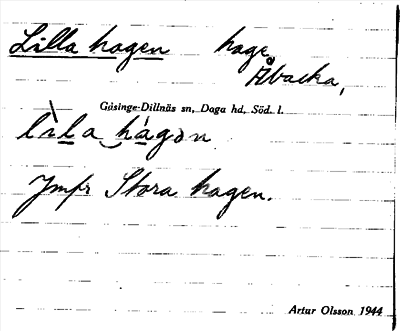 Lilla hagen hage
Åbacka,
Gåsinge-Dillnäs sn, Daga hd, Söd. l.
lìla hágɘn
Jmfr Stora hagen.
Artur Olsson 1944